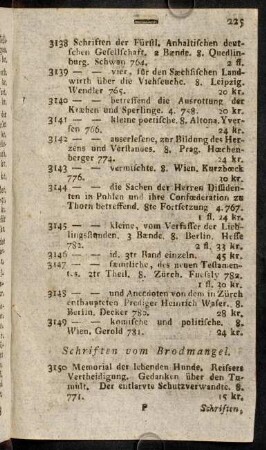 225
3138 Schriften der Fürstl. Anhaltischen deut-
schen Gesellschaft. 2 Bænde. 8. Quedlin-
burg. Schwan 764. 2 fl.
3139 — — vier, für den Sæchsischen Land-
wirth über die Viehseuche. 8. Leipzig.
Wendler 765. 20 kr.
3140 — — betreffend die Ausrottung der
Kræhen und Sperlinge. 4. 748. 20 kr.
3141 — — kleine poetische. 8. Altona. Yver-
sen 766. 24 kr.
3142 — — auserlesene, zur Bildung des Her-
zens und Verstandes. 8. Prag. Hœchen-
berger 774. 24 kr.
3143 — — vermischte. 8. Wien. Kurzbœck
776. 10 kr.
3144 — — die Sachen der Herren Dissiden-
ten in Pohlen und ihre Confœderation zu
Thorn betreffend. 8te Fortsetzung 4. 767.
1 fl. 24 kr.
3145 — — kleine, vom Verfasser der Lieb-
lingsstunden. 3 Bænde. 8. Berlin. Hesse
782. 2 fl. 33 kr.
3146 — — id. 3tr Band einzeln. 45 kr.
3147 — — sæmtliche, des neuen Testamen-
ts. 2tr Theil. 8. Zürch. Fuessly 782.
1 fl. 20 kr.
3148 — — und Anecdoten von dem in Zürch
enthaupteten Prediger Heinrich Waser. 8.
Berlin. Decker 780. 28 kr.
3149 — — komische und politische. 8.
Wien. Gerold 781. 24 kr.
Schriften vom Brodmangel.
3150 Memorial der lebenden Hunde. Reissers
Vertheidigung. Gedanken über den Tu-
mult. Der entlarvte Schutzverwandte. 8.
771. 15 kr.
P Schriften,